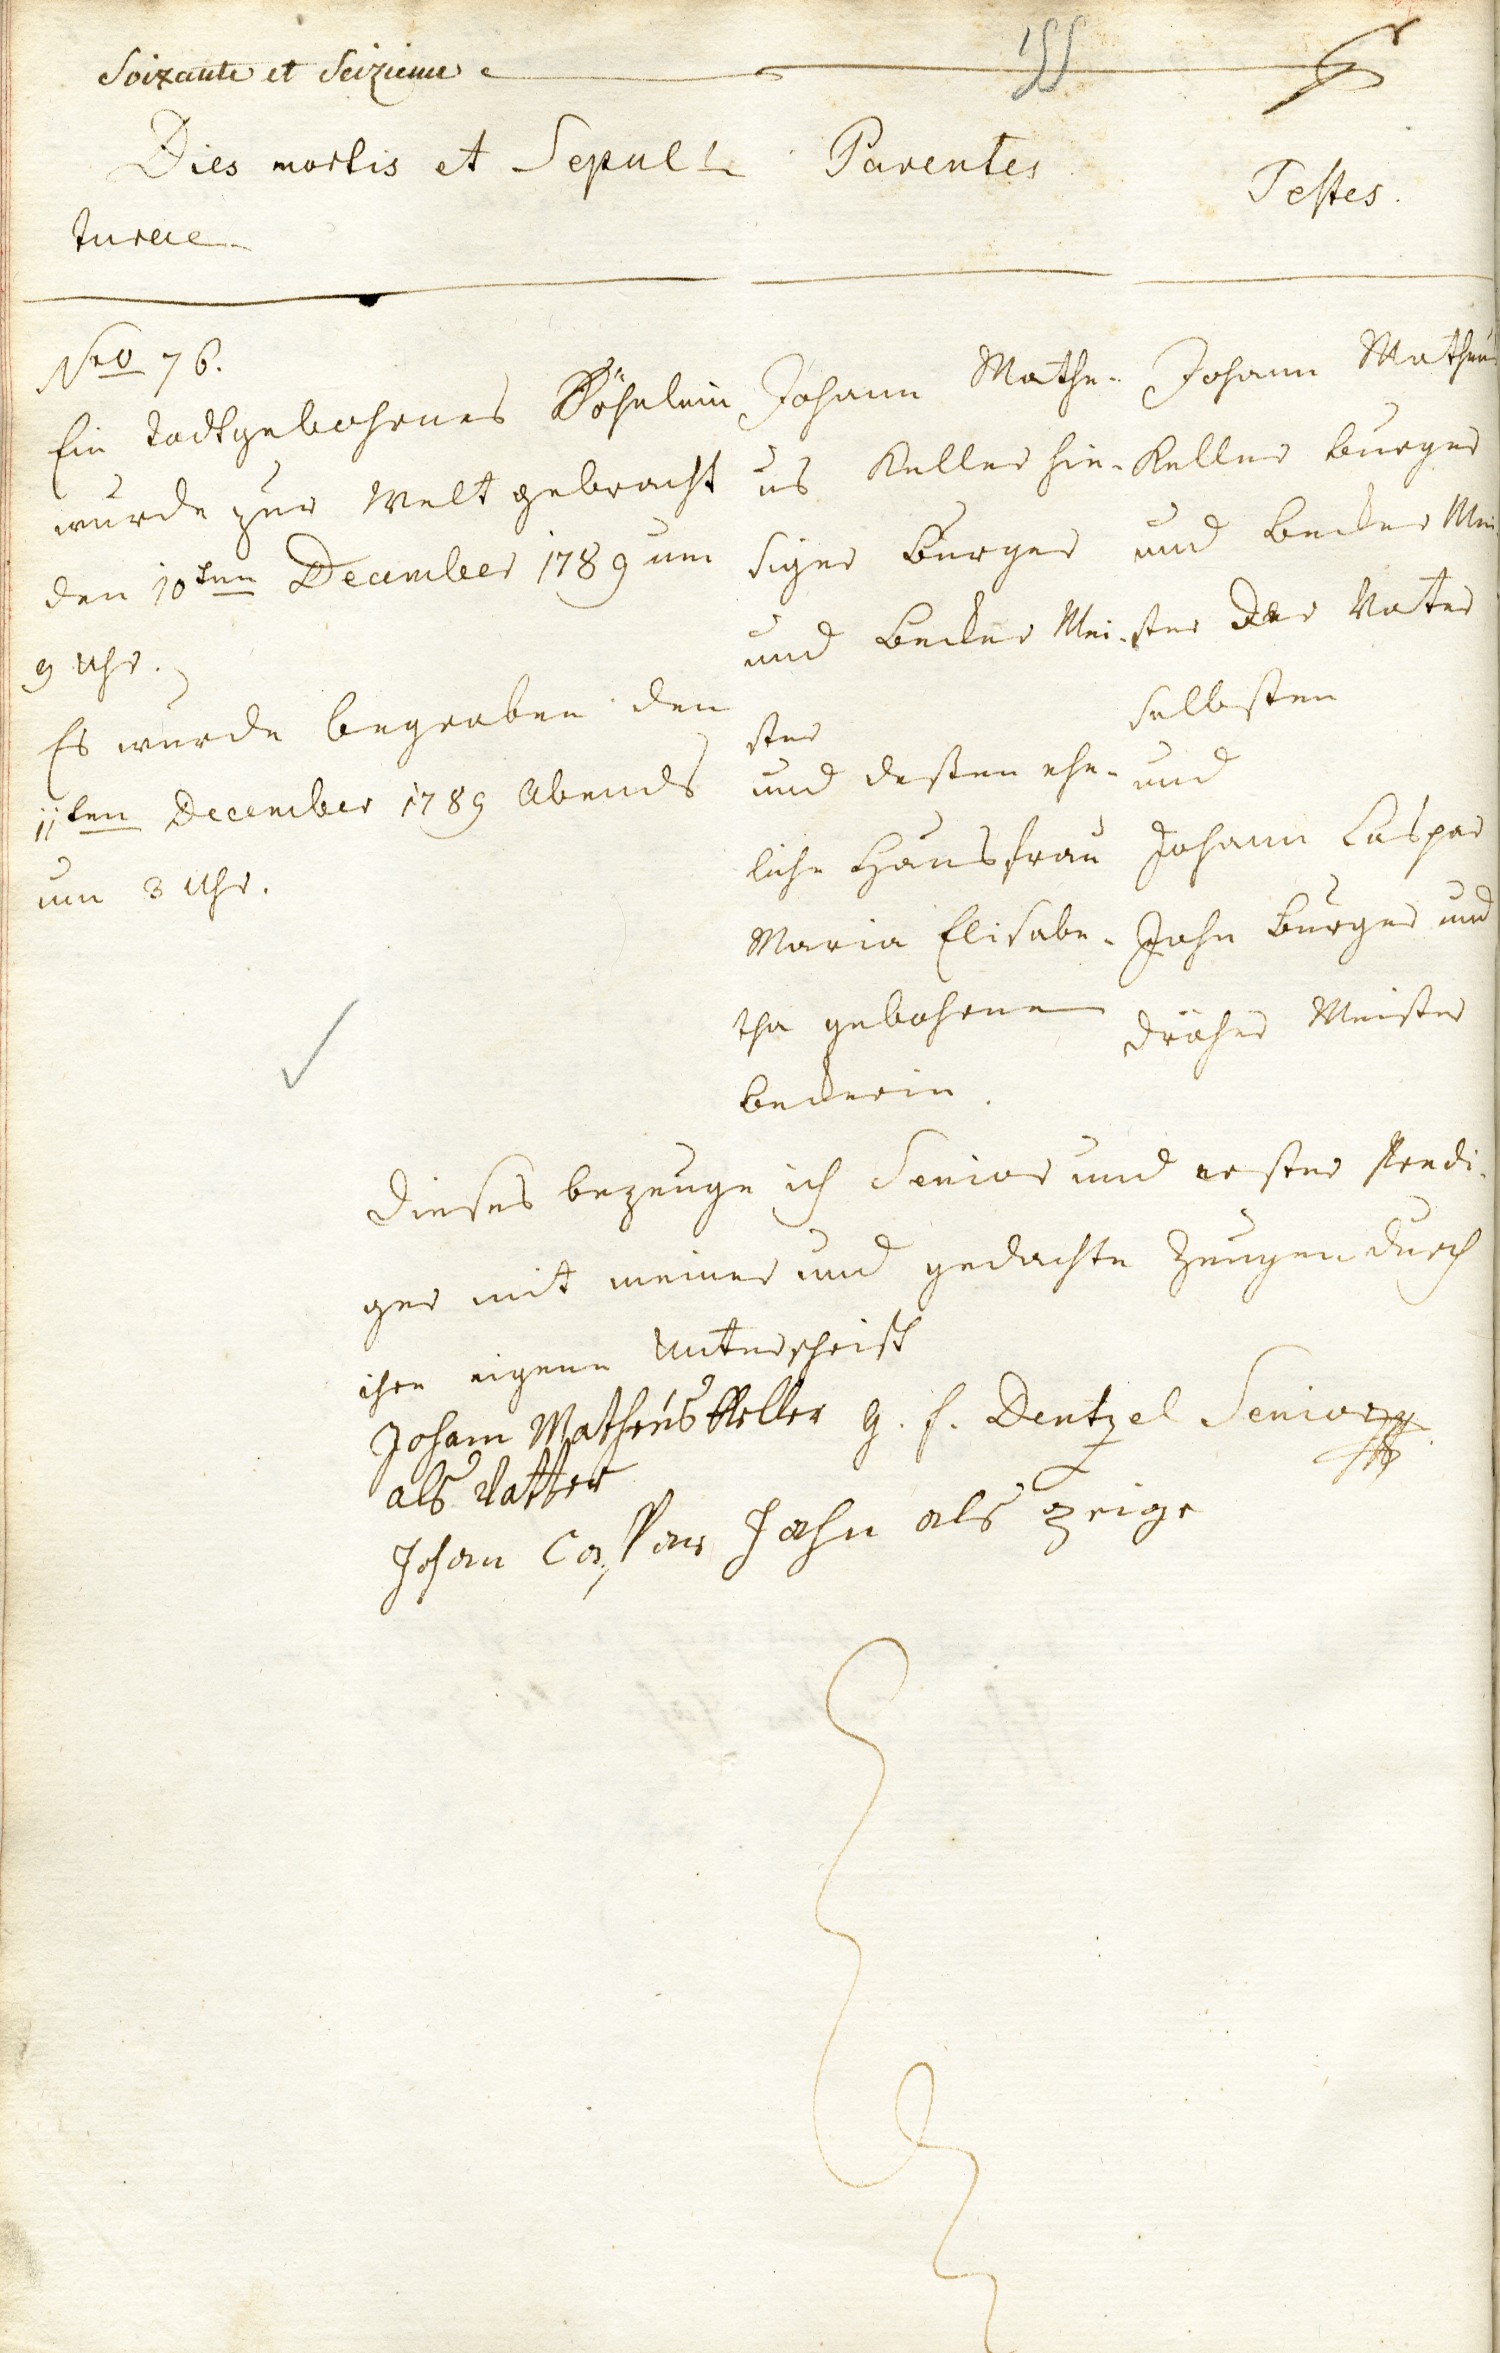 Soixante et Seizieme
155
Dies mortis et Sepul-
turae
Parentes
Testes.
Nro 76.
Ein todtgebohrnes Söhnlein
wurde zur Welt gebracht
den 10ten December 1789 um
9 Uhr.
Es wurde begraben den
11ten December 1789 Abends
um 3 Uhr.
Johann Mathe-
us Keller hie-
siger Burger
und Becker Mei-
ster
und dessen ehe-
liche Hausfrau
Maria Elisabe-
tha gebohrne
Beckerin.
Johann Matheus
Keller Burger
und Becker Mei-
ster der Vater
selbsten
und
Johann Caspar
Jahn Burger und
Dräher Meister
Dieses bezeuge ich Senior und erster Predi-
ger mit meiner und gedachte Zeugen durch
ihre eigene Unterschrift
Joham Matheus Keller G. F. Dentzel Senior
als Vatter
Johan Caspar Jahn als zeige